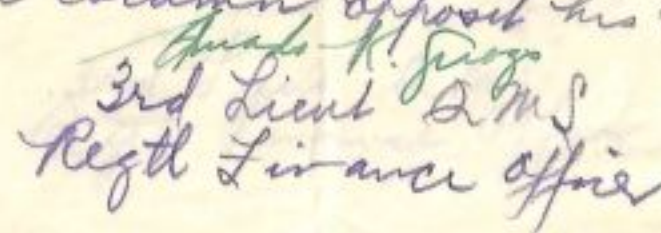 column opposit his
Amado K.
3rd Lieut Q M S
Regtl Finance Officer